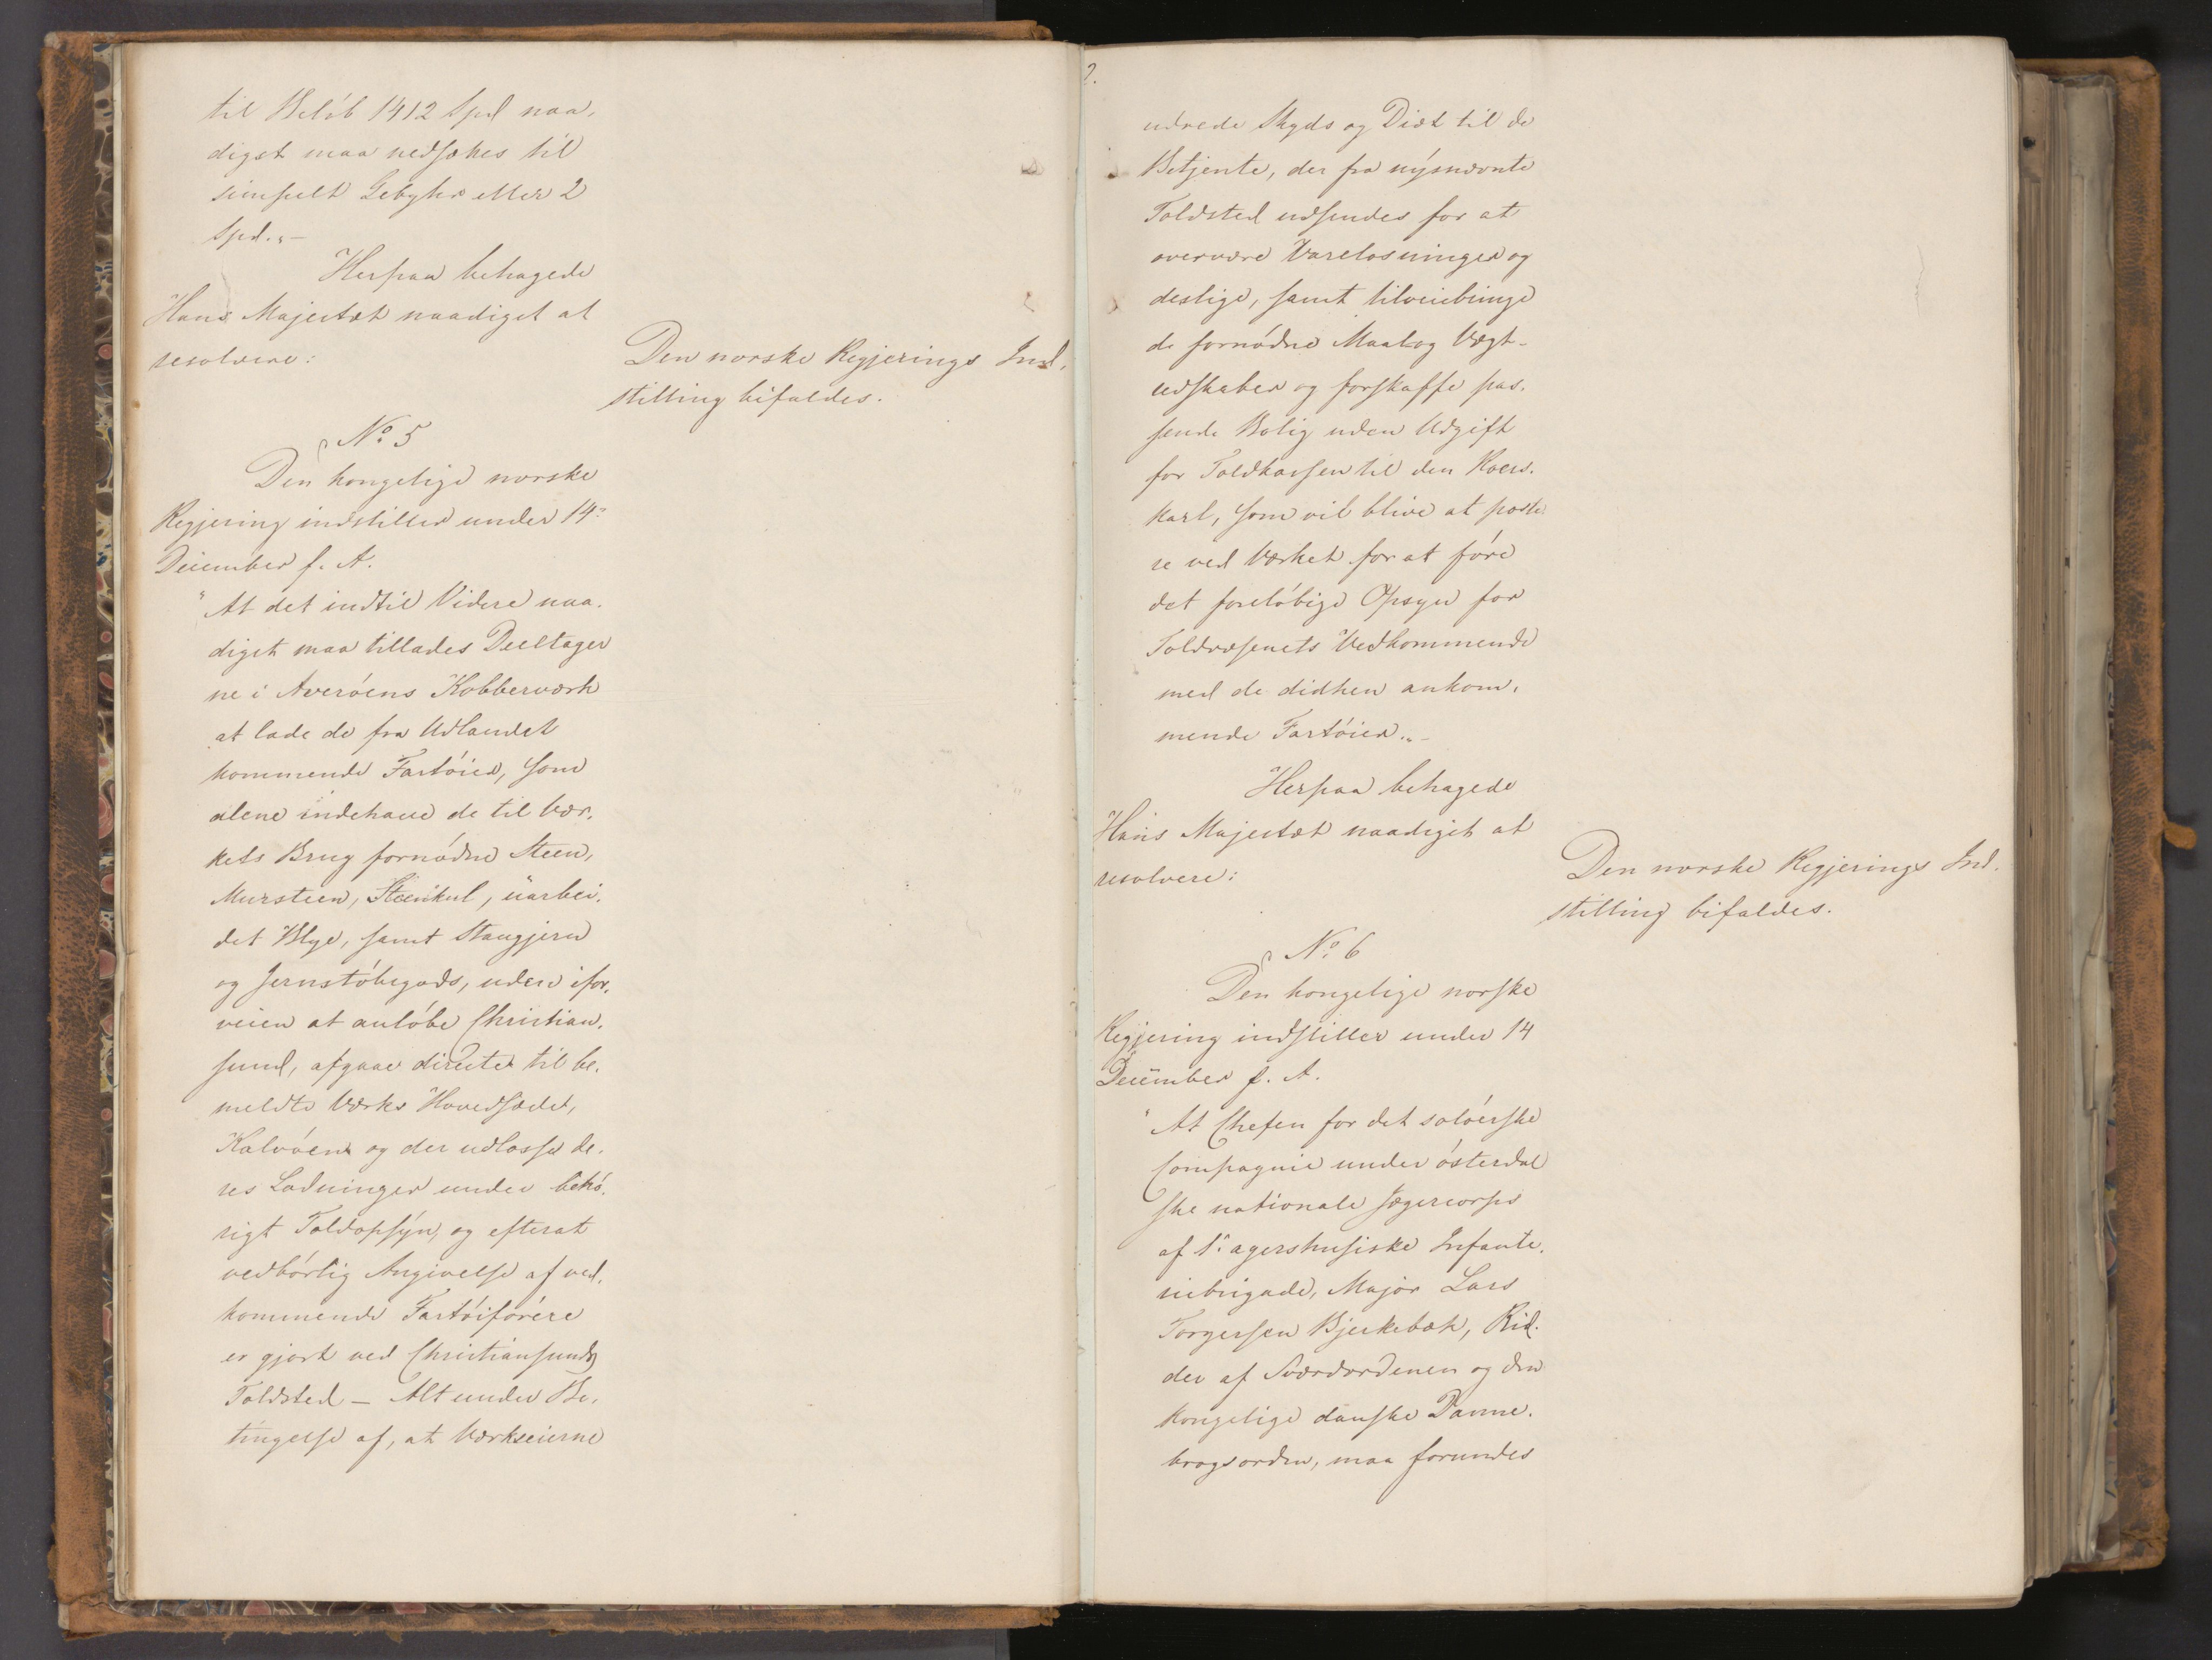 til Beløb 1412 Spd naa,
digst maa nedsættes til
simpelt Gebyhr eller 2
Spd."-
Herpaa behagede
Hans Majestæt naadigst at
resolvere:
Den norske Regjerings Ind,
stilling bifaldes.
No 5
Den kongelige norske
Regjering indstiller under 14de
December f. A.
"At det indtil Videre naa,
digst maa tillades Deeltager
ne i Averøens Kobberværk
at lade de fra Udlandet
kommende Fartøier, som
alene indehave de til Vær,
kets Brug fornødne Steen,
Mursteen, Steenkul, uarbei,
det Blye, samt Stangjern
og Jernstøbegods, uden ifor,
veien at anløbe Christian,
sund, afgaae directe til be,
meldte Værks Hovedsæde,
Kalvøen og der udlosse de,
res Ladninger under behø,
rigt Toldopsyn, og efterat
vedbørlig Angivelse af ved,
kommende Fartøiførere
er gjort ved Christiansunds
Toldsted - Alt under Be,
tingelse af, at Værkseierne
2.
udrede Skyds og Diæt til de
Betjente, der fra nysnævnte
Toldsted udsendes for at
overvære Varelosninger og
deslige, samt tilveiebringe
de fornødne Maal og Vægt-
redskaber og forskaffe pas,
sende Bolig uden Udgift
for Toldkassen til den Roers,
karl, som vil blive at poste,
re ved Værket for at føre
det foreløbige Opsyn for
Toldvæsenets Vedkommende
med de didhen ankom,
mende Fartøier."-
Herpaa behagede
Hans Majestæt naadigst at
resolvere:
Den norske Regjerings Ind,
stilling bifaldes.
No 6
Den kongelige norske
Regjering indstiller under 14
December f. A.
"At Chefen for det soløerske
Compagnie under østerdal
ske nationale Jægercorps
af 1ste agershusiske Infante,
riebrigade, Major Lars
Torgersen Bjerkebæk, Rid,
der af Sværdordenen og den
kongelige danske Danne,
brogsorden, maa forundes